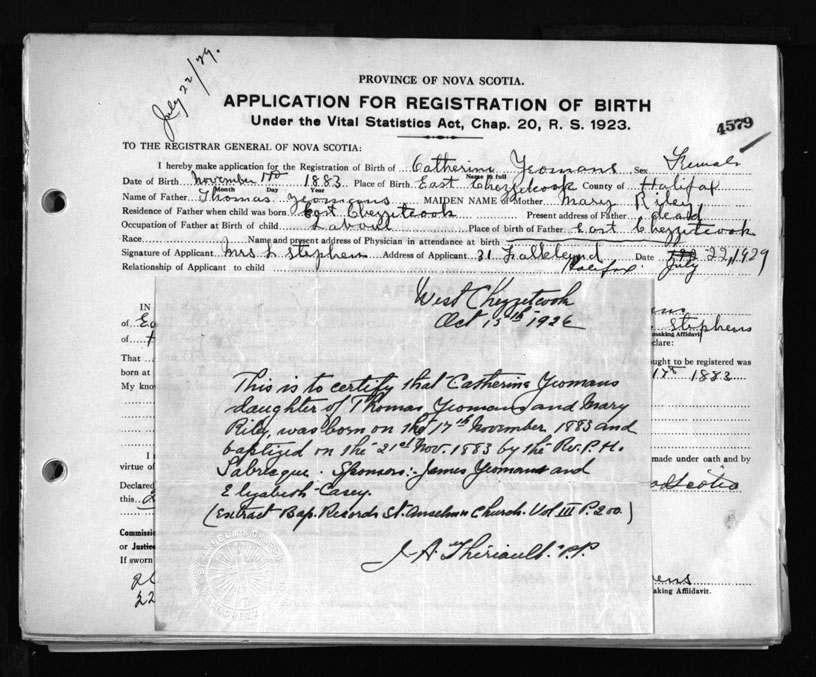 July 22/29.
PROVINCE OF NOVA SCOTIA.
APPLICATION FOR REGISTRATION OF BIRTH
Under the Vital Statistics Act, Chap. 20, R. S. 1923.
4579
TO THE REGISTRAR GENERAL OF NOVA SCOTIA:
I hereby make application for the Registration of Birth of Catherine Yeomans Sex Female
Name in full
Date of Birth November 17th 1883 Place of Birth East Chezzetcook County of Halifax
Month Day Year
Name of Father Thomas Yeomans MAIDEN NAME of Mother Mary Riley
Residence of Father when child was born East Chezzetcook Present address of Father dead
Occupation of Father at Birth of child Labour Place of birth of Father East Chezzetcook
Race Name and present address of Physician in attendance at birth
Signature of Applicant Mrs L Stephens Address of Applicant 31 Falkland Date July 22, 1929
Halifax
Relationship of Applicant to child
West Chezzetcook
Oct 15th 1926
This is to certify that Catherine Yeomans
daughter of Thomas Yeomans and Mary
Riley, was born on the 17th November 1883 and
baptized on the 21st Nov. 1883 by the Rev. P. H.
Sponsors:- James Yeomans and
Elizabeth Casey.
(Extract Bap. Records St. Anselm's Church. Vol III P. 200.)
J. A. Theriault. P.P.
IN
of Ea
of
That
born at
My kno
I
virtue of
Declared
this
Commissi
or Justice
If sworn
22
Stephens
making Affidavit
clare:
ught to be registered was
17th 1883
made under oath and by
Scotia
ens
aking Affidavit.